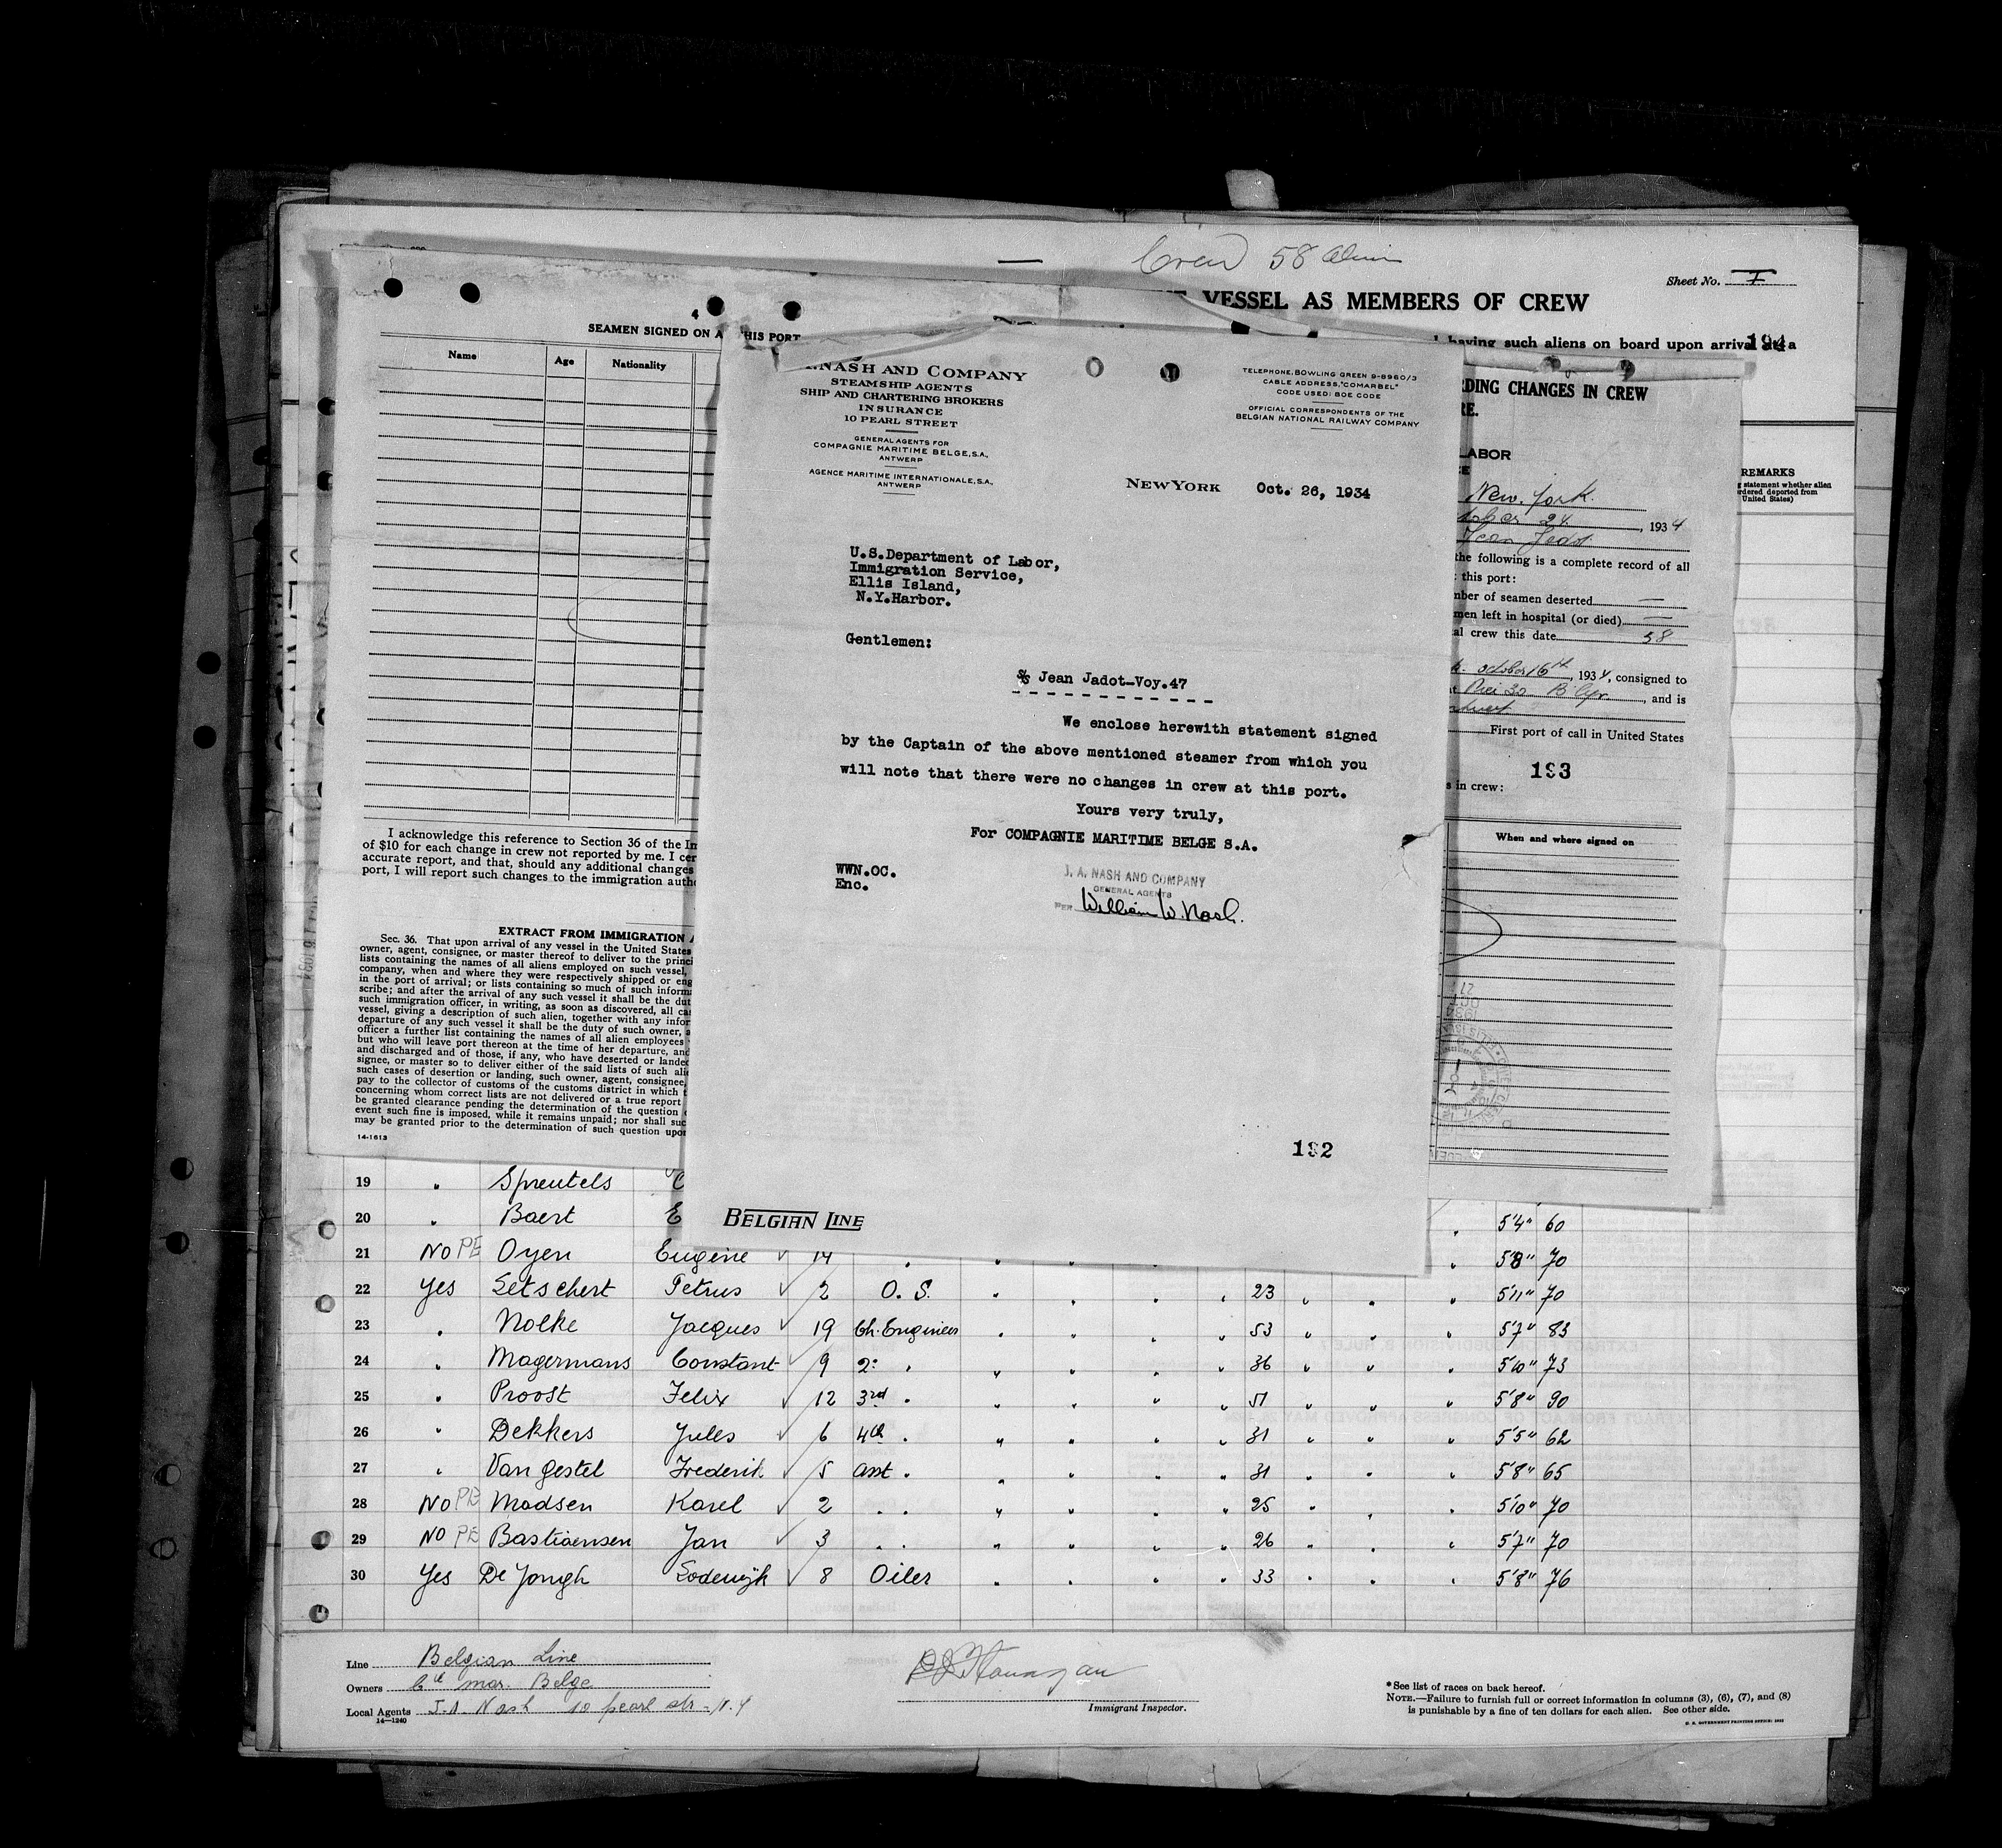 Crew 58 Alien
Sheet No. I
VESSEL AS MEMBERS OF CREW
having such aliens on board upon arrival at a
194
4
SEAMEN SIGNED ON AT THIS PORT
Name Age Nationality
I acknowledge this reference to Section 36 of the Im
of $10 for each change in crew not reported by me. I cer
accurate report, and that, should any additional changes
port, I will report such changes to the immigration auth
EXTRACT FROM IMMIGRATION A
Sec. 36. That upon arrival of any vessel in the United States
owner, agent, consignee, or master thereof to deliver to the princi
lists containing the names of all aliens employed on such vessel,
company, when and where they were respectively shipped or eng
in the port of arrival; or lists containing so much of such inform
scribe; and after the arrival of any such vessel it shall be the dut
such immigration officer, in writing, as soon as discovered, all ca
vessel, giving a description of such alien, together with any infor
departure of any such vessel it shall be the duty of such owner, a
officer a further list containing the names of all alien employees
but who will leave port thereon at the time of her departure, and
and discharged and of those, if any, who have deserted or landed
signee, or master so to deliver either of the said lists of such ali
such cases of desertion or landing, such owner, agent, consignee,
pay to the collector of customs of the customs district in which t
concerning whom correct lists are not delivered or a true report
be granted clearance pending the determination of the question
event such fine is imposed, while it remains unpaid; nor shall suc
may be granted prior to the determination of such question upon
14-1613
.NASH AND COMPANY
STEAMSHIP AGENTS
SHIP AND CHARTERING BROKERS
INSURANCE
10 PEARL STREET
GENERAL AGENTS FOR
COMPAGNIE MARITIME BELGE, S.A.,
ANTWERP
AGENCE MARITIME INTERNATIONALE, S.A.,
ANTWERP
TELEPHONE, BOWLING GREEN 9-8960/3
CABLE ADDRESS, "COMARBEL"
CODE USED: BOE CODE
OFFICIAL CORRESPONDENTS OF THE
BELGIAN NATIONAL RAILWAY COMPANY
NEW YORK Oct. 26, 1934
U.S.Department of Labor,
Immigration Service,
Ellis Island,
N.Y.Harbor.
Gentlemen:
S/S Jean Jadot-Voy.47
We enclose herewith statement signed
by the Captain of the above mentioned steamer from which you
will note that there were no changes in crew at this port.
Yours very truly,
For COMPAGNIE MARITIME BELGE S.A.
WWN.OC.
Enc.
J. A. NASH AND COMPANY
GENERAL AGENTS
PER William W. Nash.
192
BELGIAN LINE
RDING CHANGES IN CREW
RE.
LABOR
CE
New. York.
24. , 1934
Jean Jadot
the following is a complete record of all
this port:
mber of seamen deserted —
men left in hospital (or died) —
al crew this date 58
october 16th, 1934, consigned to
Pier 30 B'lyn. , and is
First port of call in United States
193
s in crew:
When and where signed on
REMARKS
statement whether alien
ordered deported from
United States)
19 " Spreutels
20 " Baert E 5'4" 60
21 No PE Oyen Eugène 14 " 5'8" 70
22 Yes Setschert Petrus 2 O. S. " " " " 23 " " " 5'11" 70
23 " Nolke Jacques 19 Ch. Engineer " " " " 53 " " " 5'7" 83
24 " Magermans Constant 9 2: " " " " " 36 " " " 5'10" 73
25 " Proost Felix 12 3rd " " " " " 51 " " " 5'8" 90
26 " Dekkers Jules 6 4th " " " " " 31 " " " 5'5" 62
27 " Van Gestel Frederik 5 asst " " " " " 31 " " " 5'8" 65
28 No PE Madsen Karel 2 " " " " " " 25 " " " 5'10" 70
29 No PE Bastiaensen Jan 3 " " " " " " 26 " " " 5'7" 70
30 Yes De Jongh Lodewijk 8 Oiler " " " " 33 " " " 5'8" 76
Line Belgian Line
Owners Cie mar. Belge
Local Agents J.A. Nash 10 pearl str - N.Y
14-1240
Immigrant Inspector.
* See list of races on back hereof.
NOTE.—Failure to furnish full or correct information in columns (3), (6), (7), and (8)
is punishable by a fine of ten dollars for each alien. See other side.